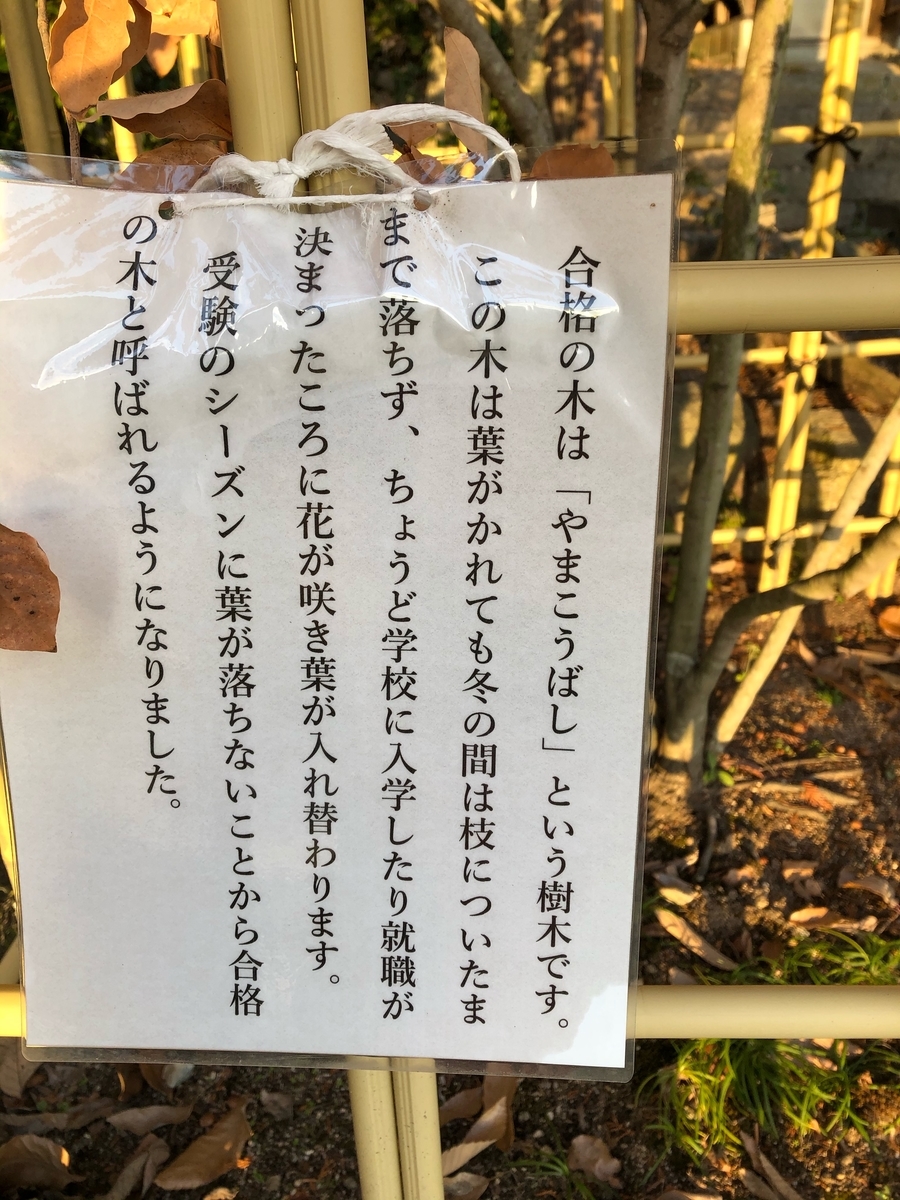 合格の木は「やまこうばし」という樹木です。
この木は葉がかれても冬の間は枝についたま
まで落ちず、ちょうど学校に入学したり就職が
決まったころに花が咲き葉が入れ替わります。
受験のシーズンに葉が落ちないことから合格
の木と呼ばれるようになりました。